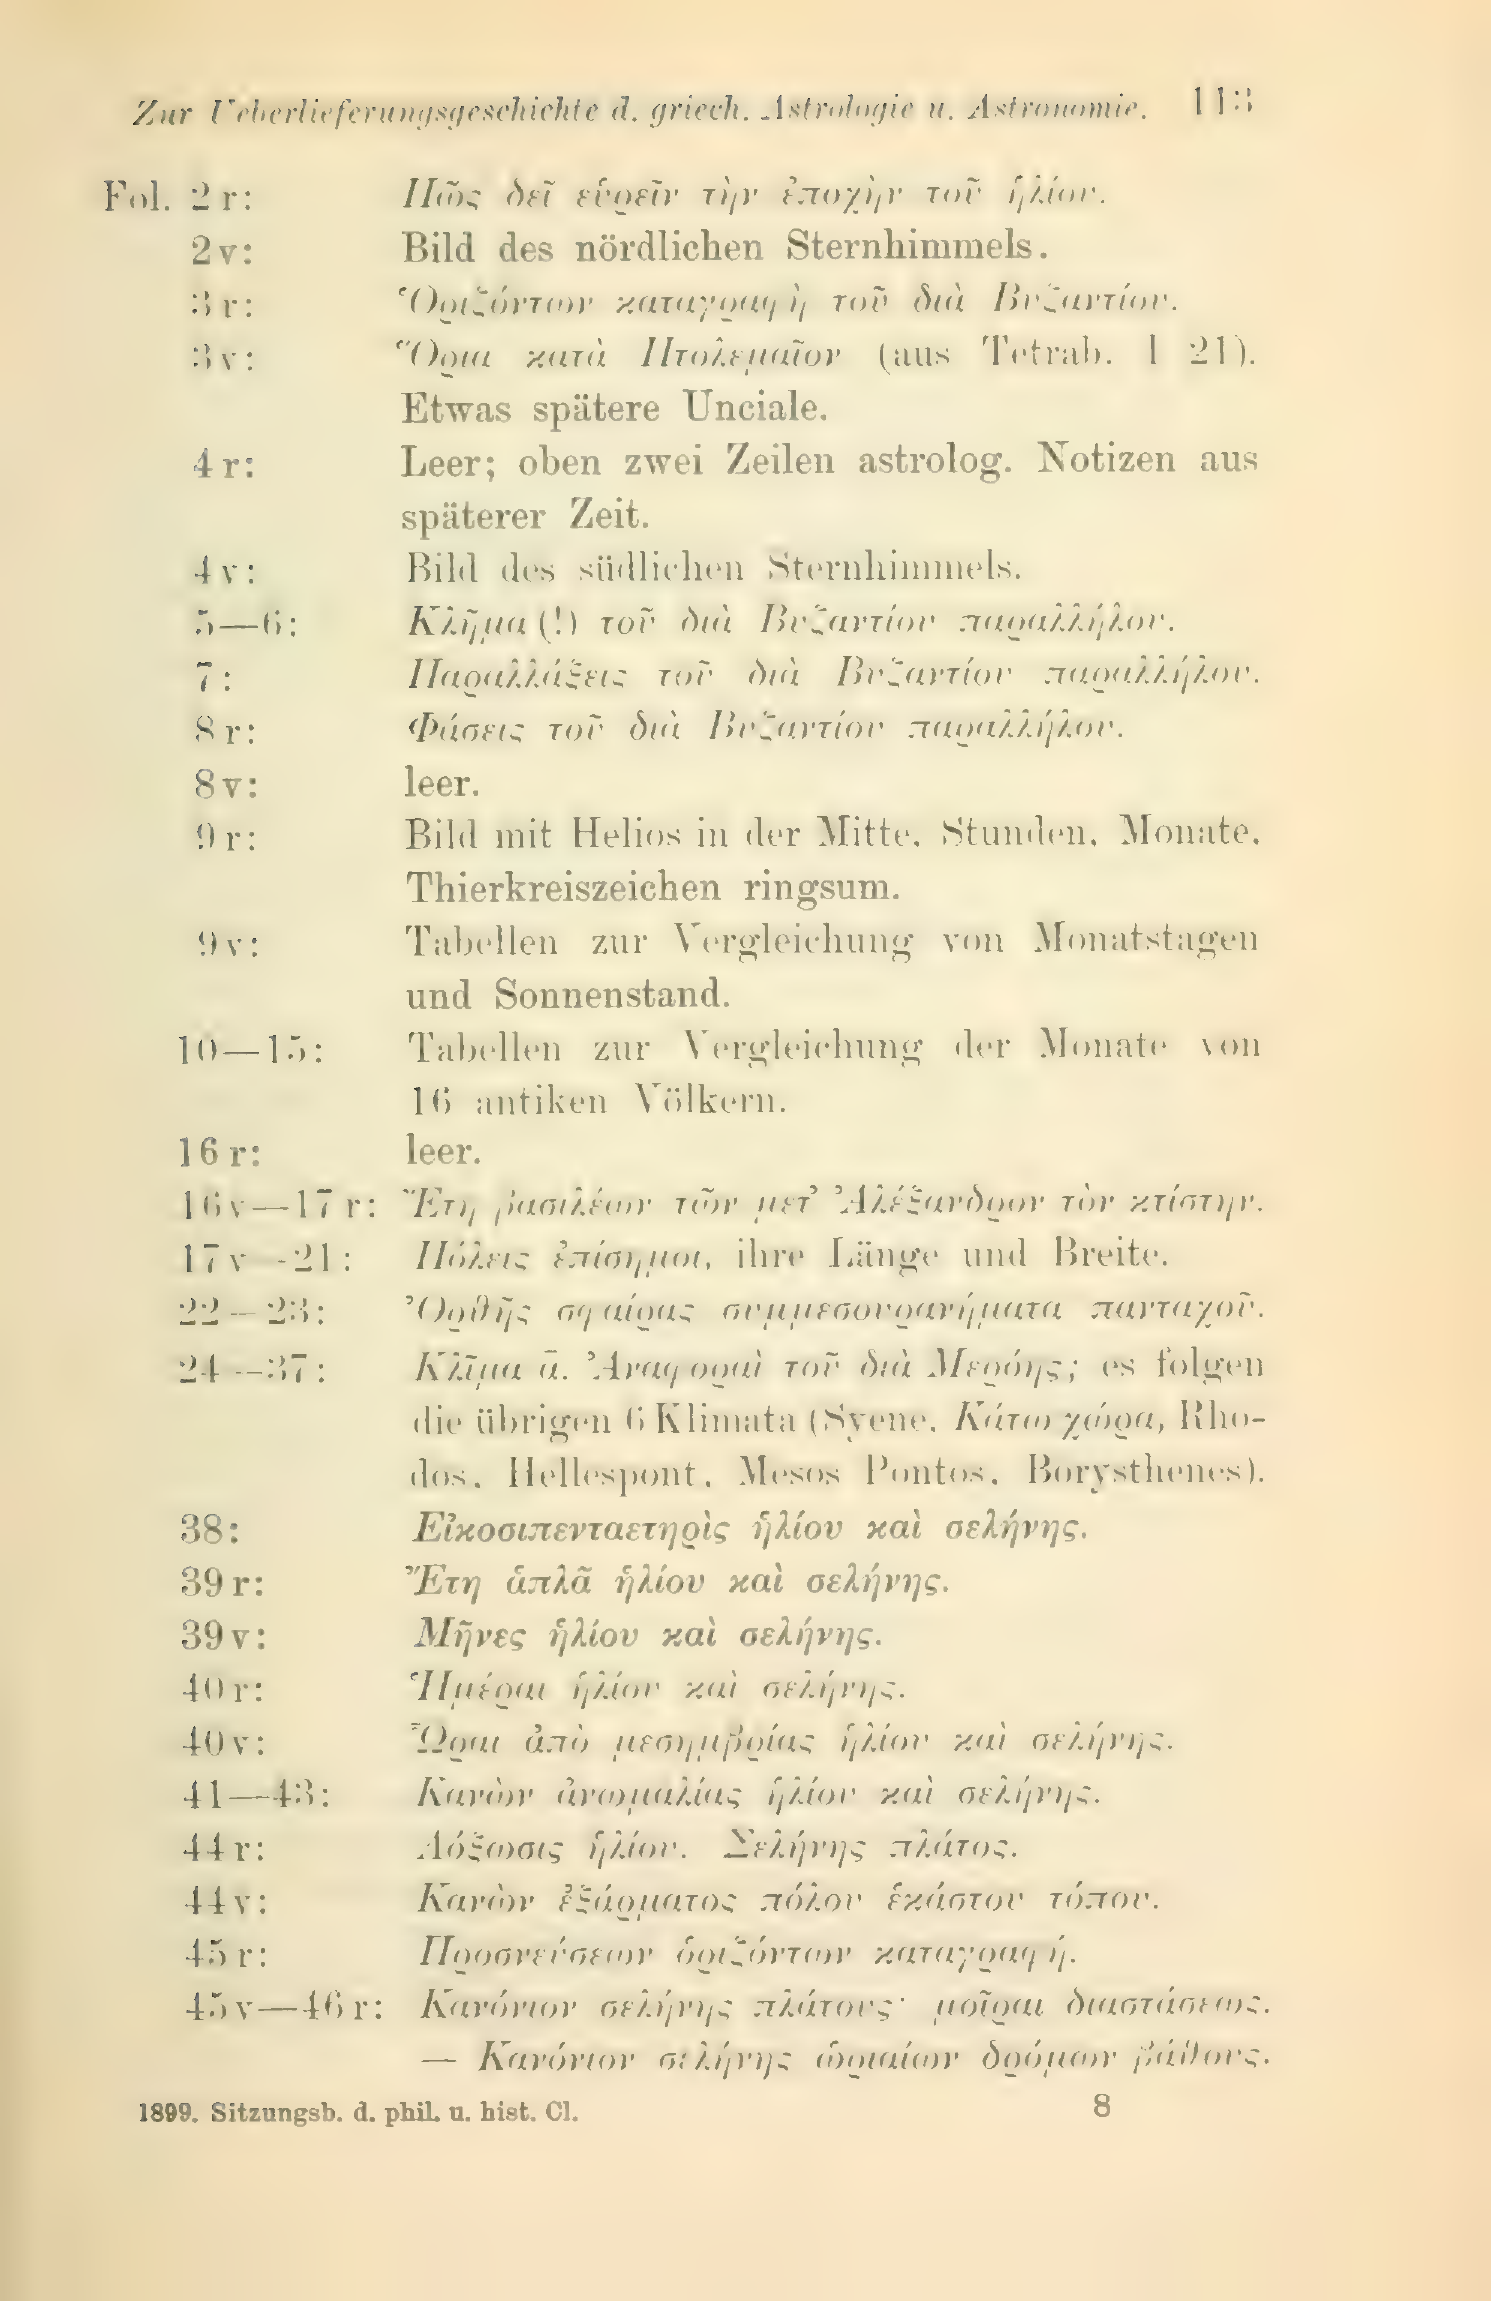 Zur Ueberlieferungsgeschichte d. griech. Astrologie u. Astronomie. 113
Fol. 2r: Πῶς δεῖ εὑρεῖν τὴν ἐποχὴν τοῦ ἡλίου.
2v: Bild des nördlichen Sternhimmels.
3r: Ὁριζόντων καταγραφὴ τοῦ διὰ Βυζαντίου.
3v: Ὅρια κατὰ Πτολεμαῖον (aus Tetrab. I 21).
Etwas spätere Unciale.
4r: Leer; oben zwei Zeilen astrolog. Notizen aus
späterer Zeit.
4v: Bild des südlichen Sternhimmels.
5—6: Κλῆμα (!) τοῦ διὰ Βυζαντίου παραλλήλου.
7: Παραλλάξεις τοῦ διὰ Βυζαντίου παραλλήλου.
8r: Φάσεις τοῦ διὰ Βυζαντίου παραλλήλου.
8v: leer.
9r: Bild mit Helios in der Mitte, Stunden, Monate,
Thierkreiszeichen ringsum.
9v: Tabellen zur Vergleichung von Monatstagen
und Sonnenstand.
10—15: Tabellen zur Vergleichung der Monate von
16 antiken Völkern.
16r: leer.
16v—17r: Ἔτη βασιλέων τῶν μετ’ Ἀλέξανδρον τὸν κτίστην.
17v—21: Πόλεις ἐπίσημοι, ihre Länge und Breite.
22—23: Ὀρθῆς σφαίρας συμμεσουρανήματα πανταχοῦ.
24—37: Κλῖμα ᾱ. Ἀναφοραὶ τοῦ διὰ Μερόης; es folgen
die übrigen 6 Klimata (Syene, Κάτω χώρα, Rho-
dos, Hellespont, Mesos Pontos, Borysthenes).
38: Εἰκοσιπενταετηρὶς ἡλίου καὶ σελήνης.
39r: Ἔτη ἁπλᾶ ἡλίου καὶ σελήνης.
39v: Μῆνες ἡλίου καὶ σελήνης.
40r: Ἡμέραι ἡλίου καὶ σελήνης.
40v: Ὧραι ἀπὸ μεσημβρίας ἡλίου καὶ σελήνης.
41—43: Κανὼν ἀνωμαλίας ἡλίου καὶ σελήνης.
44r: Λόξωσις ἡλίου. Σελήνης πλάτος.
44v: Κανὼν ἐξάρματος πόλου ἑκάστου τόπου.
45r: Προσνεύσεων ὁριζόντων καταγραφή.
45v—46r: Κανόνιον σελήνης πλάτους· μοῖραι διαστάσεως.
— Κανόνιον σελήνης ὡριαίων δρόμων βάθους.
1899. Sitzungsb. d. phil. u. hist. Cl. 8